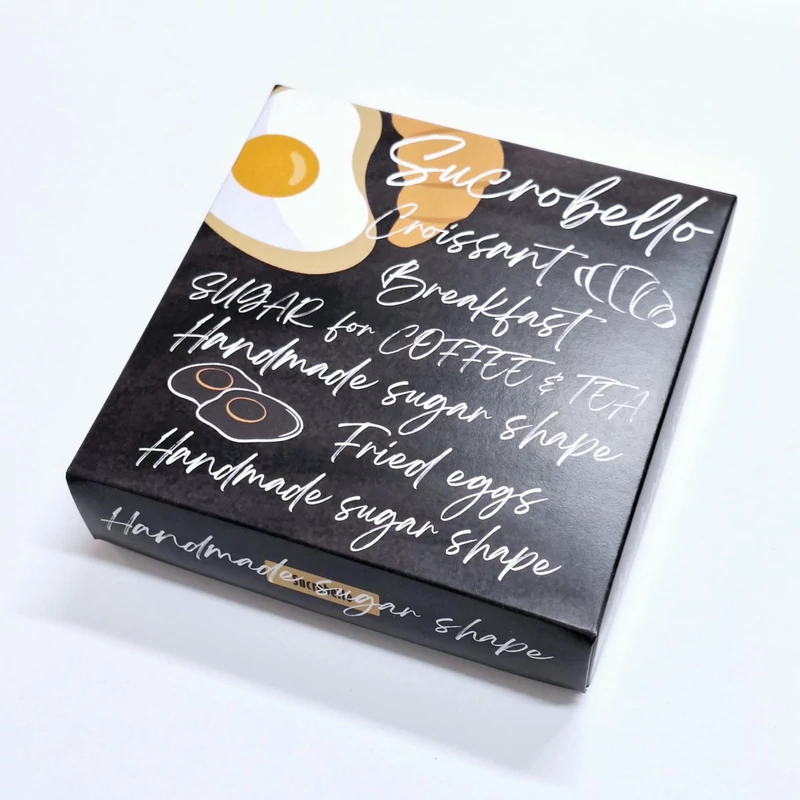 Sucrobello
Croissant
Breakfast
SUGAR for COFFEE & TEA
Handmade sugar shape
Fried eggs
Handmade sugar shape
Handmade sugar shape
sucrobello